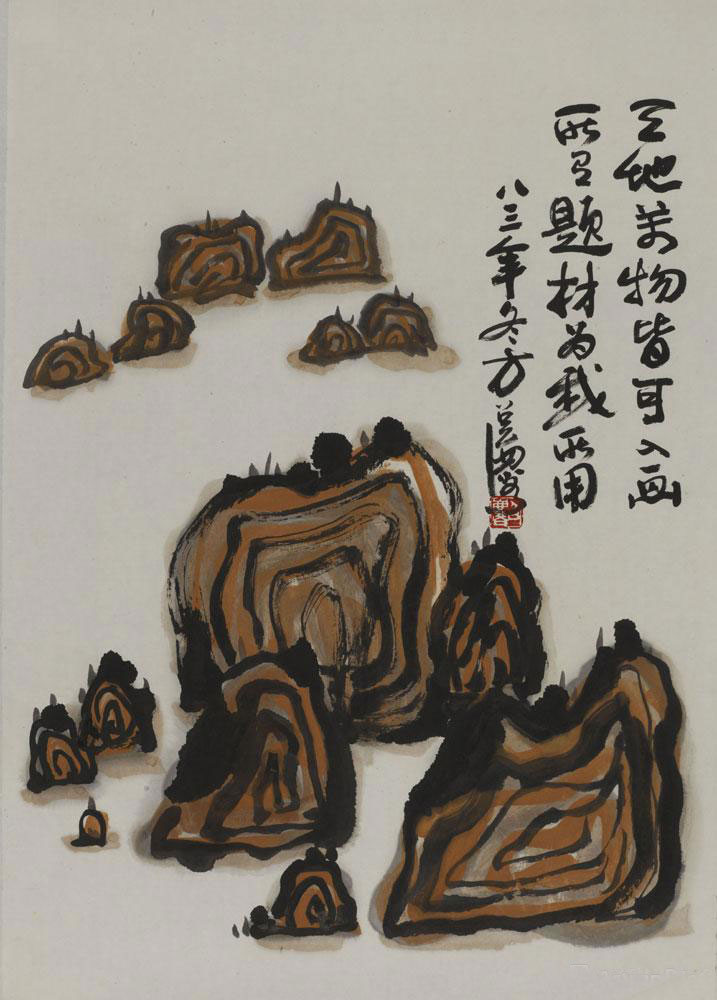 天地萬物皆可入画
所有题材为我所用
八三年冬方召麐